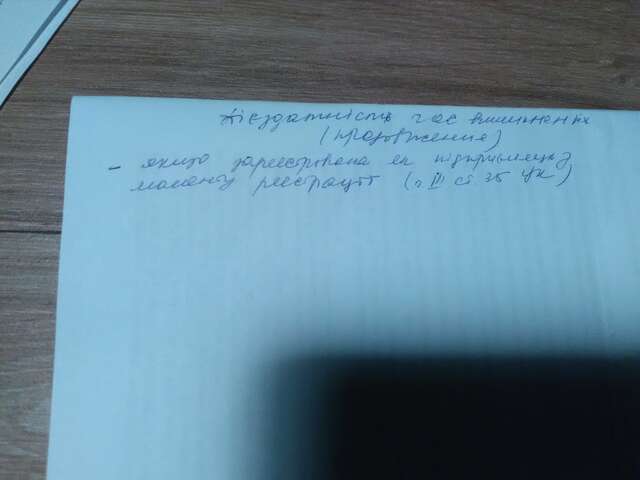 Дієздатність час виникнення
(продовження)
- якщо зареєстрована як підприємець з
моменту реєстрації (п III ст. 35 ЦК)